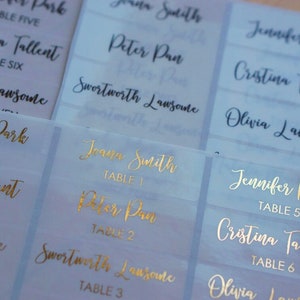 fer Park
TABLE FIVE
Tallent
SIX
Lawsome
Joana Smith
Peter Pan
Swortworth Lawsome
Jennifer
Cristina
Olivia
Park
Joana Smith
TABLE 1
Peter Pan
TABLE 2
Swortworth Lawsome
TABLE 3
Jennifer P
TABLE 5
Cristina Ta
TABLE 6
Olivia Law